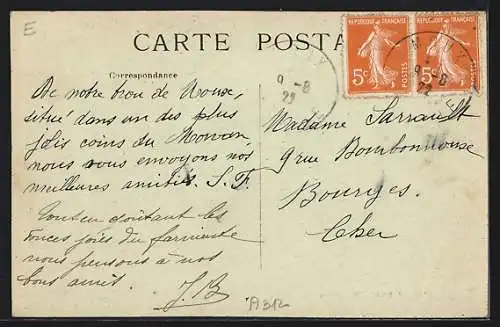 E
CARTE POSTA
Correspondance
RÉPUBLIQUE FRANÇAISE
5c
POSTES
RÉPUBLIQUE FRANÇAISE
5c
POSTES
9-8
23
De notre trou de
situé dans un des plus
jolis coins du Morvan
nous vous envoyons nos
meilleures amitiés. S.F.
Tout en goûtant les
douces joies du farniente
nous pensons à nos
bons amis.
J.B
Madame Sarrault
9 rue Bourbonnoux
Bourges
Cher
A312